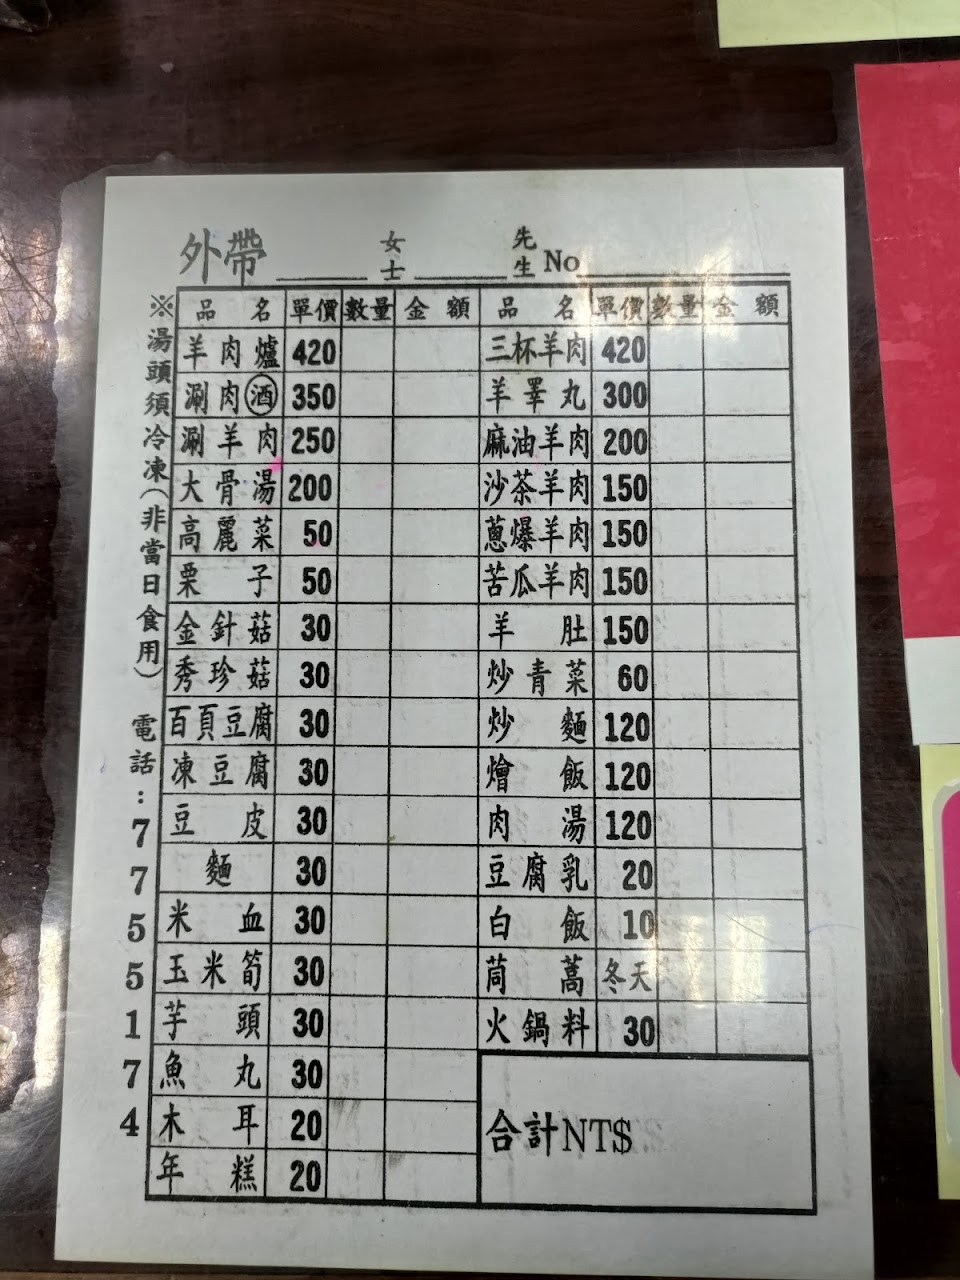 外帶 女士 先生 No
品名 單價 數量 金額 品名 單價 數量 金額
羊肉爐 420 三杯羊肉 420
涮肉酒 350 羊睪丸 300
涮羊肉 250 麻油羊肉 200
大骨湯 200 沙茶羊肉 150
高麗菜 50 蔥爆羊肉 150
栗子 50 苦瓜羊肉 150
金針菇 30 羊肚 150
秀珍菇 30 炒青菜 60
百頁豆腐 30 炒麵 120
凍豆腐 30 燴飯 120
豆皮 30 肉湯 120
麵 30 豆腐乳 20
米血 30 白飯 10
玉米筍 30 茼蒿 冬天
芋頭 30 火鍋料 30
魚丸 30
木耳 20
年糕 20
合計NT$
※湯頭須冷凍(非當日食用) 電話:7755174